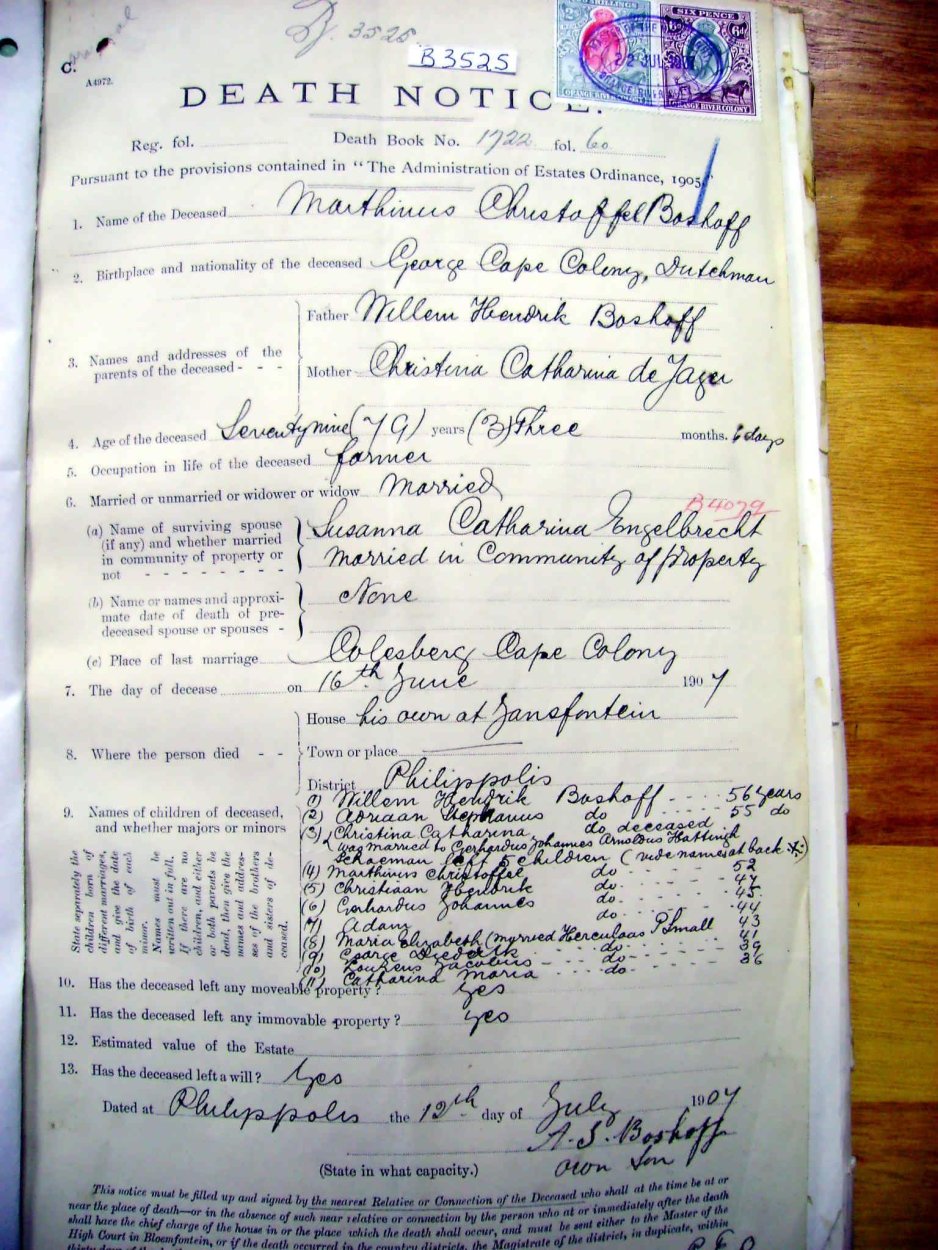 B. 3525
B3525
C.
A4972.
SIX PENCE
6d 6d
ORANGE RIVER COLONY
DEATH NOTICE.
Reg. fol. Death Book No. 1722 fol. 60
Pursuant to the provisions contained in "The Administration of Estates Ordinance, 1905."
1. Name of the Deceased Marthinus Christoffel Boshoff
2. Birthplace and nationality of the deceased George Cape Colony, Dutchman
3. Names and addresses of the parents of the deceased - - -
Father Willem Hendrik Boshoff
Mother Christina Catharina de Jager
4. Age of the deceased Seventynine (79) years (3) Three months. 6 days
5. Occupation in life of the deceased farmer
6. Married or unmarried or widower or widow Married
B4079
(a) Name of surviving spouse
(if any) and whether married
in community of property or
not - - - - - - -
Susanna Catharina Engelbrecht
Married in Community of Property
(b) Name or names and approxi-
mate date of death of pre-
deceased spouse or spouses -
None
(c) Place of last marriage Colesberg Cape Colony
7. The day of decease on 16th June 1907
8. Where the person died - -
House his own at Jansfontein
Town or place
District Philippolis
9. Names of children of deceased,
and whether majors or minors
State separately the
children born of
different marriages,
and give the date
of birth of each
minor.
Names must be
written out in full.
If there are no
children, and either
or both parents be
dead, then give the
names and address-
es of the brothers
and sisters of de-
ceased.
(1) Willem Hendrik Boshoff - - - - 56 years
(2) Adriaan Stephanus do - - - - 55 do
(3) Christina Catharina do deceased
was married to Gerhardus Johannes Arnoldus Hattingh
Schoeman left 5 children (vide names at back)
(4) Marthinus Christoffel do - - - 52
(5) Christiaan Hendrik do - - - 47
(6) Gerhardus Johannes do - - - 45
(7) Adam do - - - 44
(8) Maria Elizabeth (married Herculaas P Small 43
(9) George Diederik do - - - 41
(10) Lourens Jacobus do - - - 39
(11) Catharina Maria do - - - 36
10. Has the deceased left any moveable property? yes
11. Has the deceased left any immovable property? yes
12. Estimated value of the Estate
13. Has the deceased left a will? Yes
Dated at Philippolis the 12th day of July 1907
A. S. Boshoff
(State in what capacity.) own Son
This notice must be filled up and signed by the nearest Relative or Connection of the Deceased who shall at the time be at or
near the place of death—or in the absence of such near relative or connection by the person who at or immediately after the death
shall have the chief charge of the house in or the place which the death shall occur, and must be sent either to the Master of the
High Court in Bloemfontein, or if the death occurred in the country districts, the Magistrate of the district, in duplicate, within